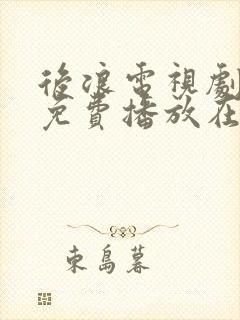 後浪電視劇
免費播放在
東島暮